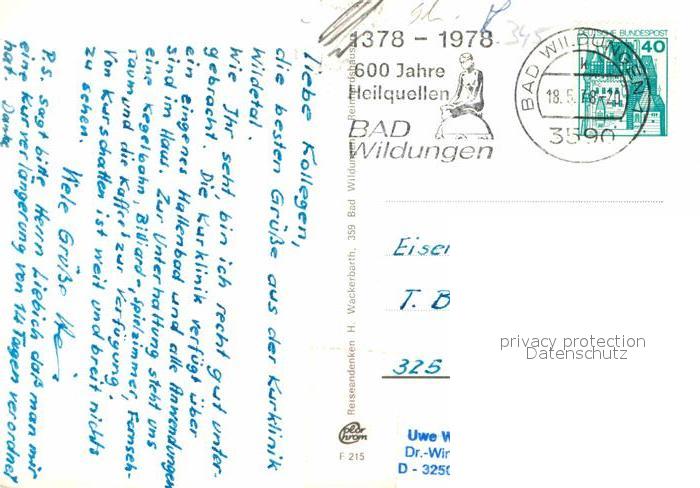 Liebe Kollegen,
die besten Grüße aus der Kurklinik
Wildetal.
Wie Ihr seht, bin ich recht gut unter-
gebracht. Die Kurklinik verfügt über
ein eigenes Hallenbad und alle Anwendungen
sind im Haus. Zur Unterhaltung steht uns
eine Kegelbahn, Billiard-, Spielzimmer, Fernseh-
raum und die Kaffees zur Verfügung.
Von Kurschatten ist weit und breit nichts
zu sehen.
Viele Grüße
P.S. Sagt bitte Herrn Liebich daß man mir
eine Kurverlängerung von 14 Tagen verordnet
hat. Danke
Reiseandenken H. Wackerbarth, 359 Bad Wildungen
1378 - 1978
600 Jahre
Heilquellen
BAD
Wildungen
BAD WILDUNGEN
18.5.78
3590
DEUTSCHE BUNDESPOST
40
345
Eisen
T. B
325
privacy protection
Datenschutz
Uwe W
Dr.-Wir
D - 3250
F 215